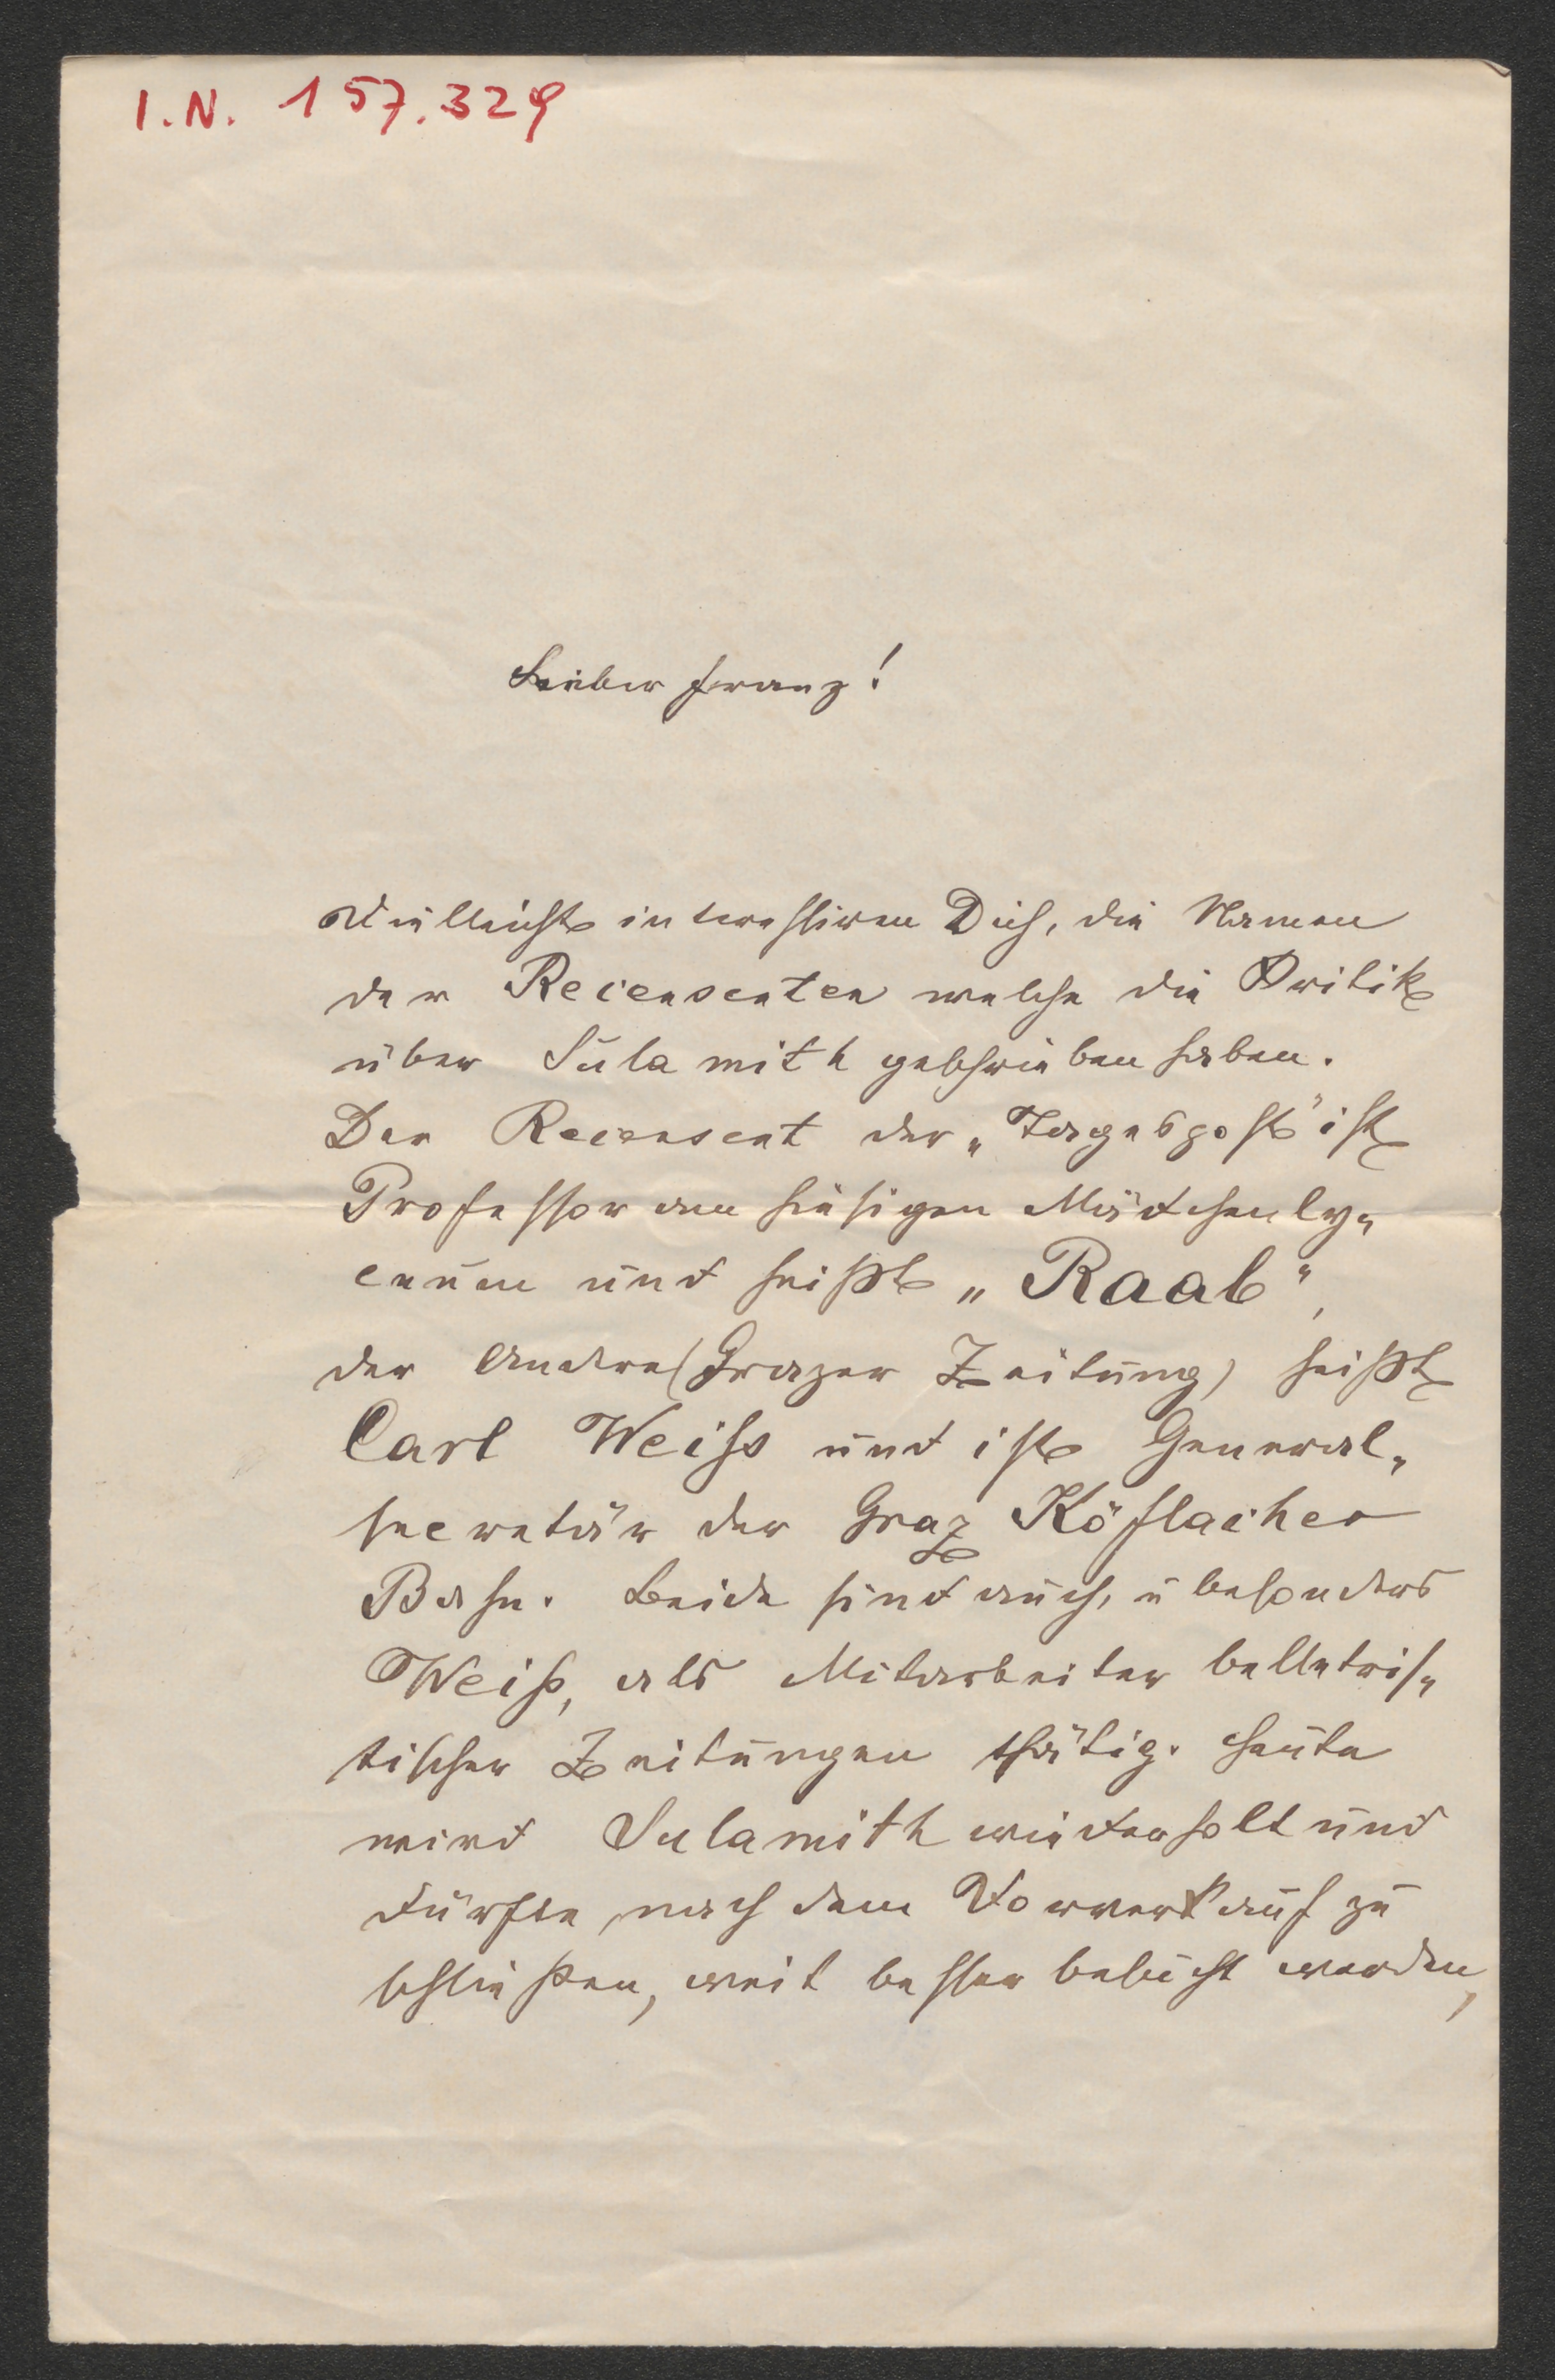 I.N. 157.329
Lieber Franz!
Vielleicht interessiren Dich, die Namen
der Recensenten welche die Kritik
über Sulamith geschrieben haben.
Der Recensent der „Tagespost" ist
Professor am hiesigen Mädchenly„
ceum und heißt „Raab",
der Andere (Grazer Zeitung) heißt
Carl Weiss und ist General„
secretär der Graz Köflacher
Bahn. Beide sind auch, u besonders
Weiß, als Mitarbeiter belletris„
tischer Zeitungen thätig. Heute
wird Sulamith wiederholt und
dürfte, nach dem Vorverkauf zu
schließen, weit besser besucht werden,